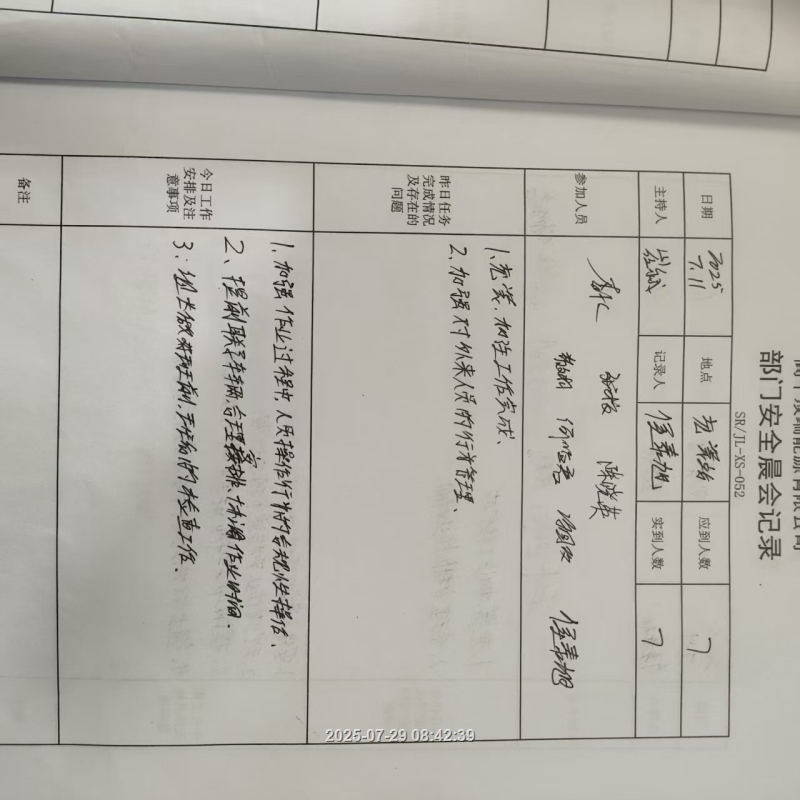 能源有限公司
部门安全晨会记录
SR/JL-XS-052
日期 2025 7.11 地点 应到人数 7
主持人 记录人 任春旭 实到人数 7
参加人员
陈晓英
任春旭
昨日任务完成情况及存在的问题
1、充装、加注工作完成、
2、加强对外来人员的行为管理、
今日工作安排及注意事项
1、加强作业过程中,人员操作行为的合规性操作、
2、提前联系车辆,合理安排、协调作业时间.
3、做好班前、检查工作.
备注
2025-07-29 08:42:39